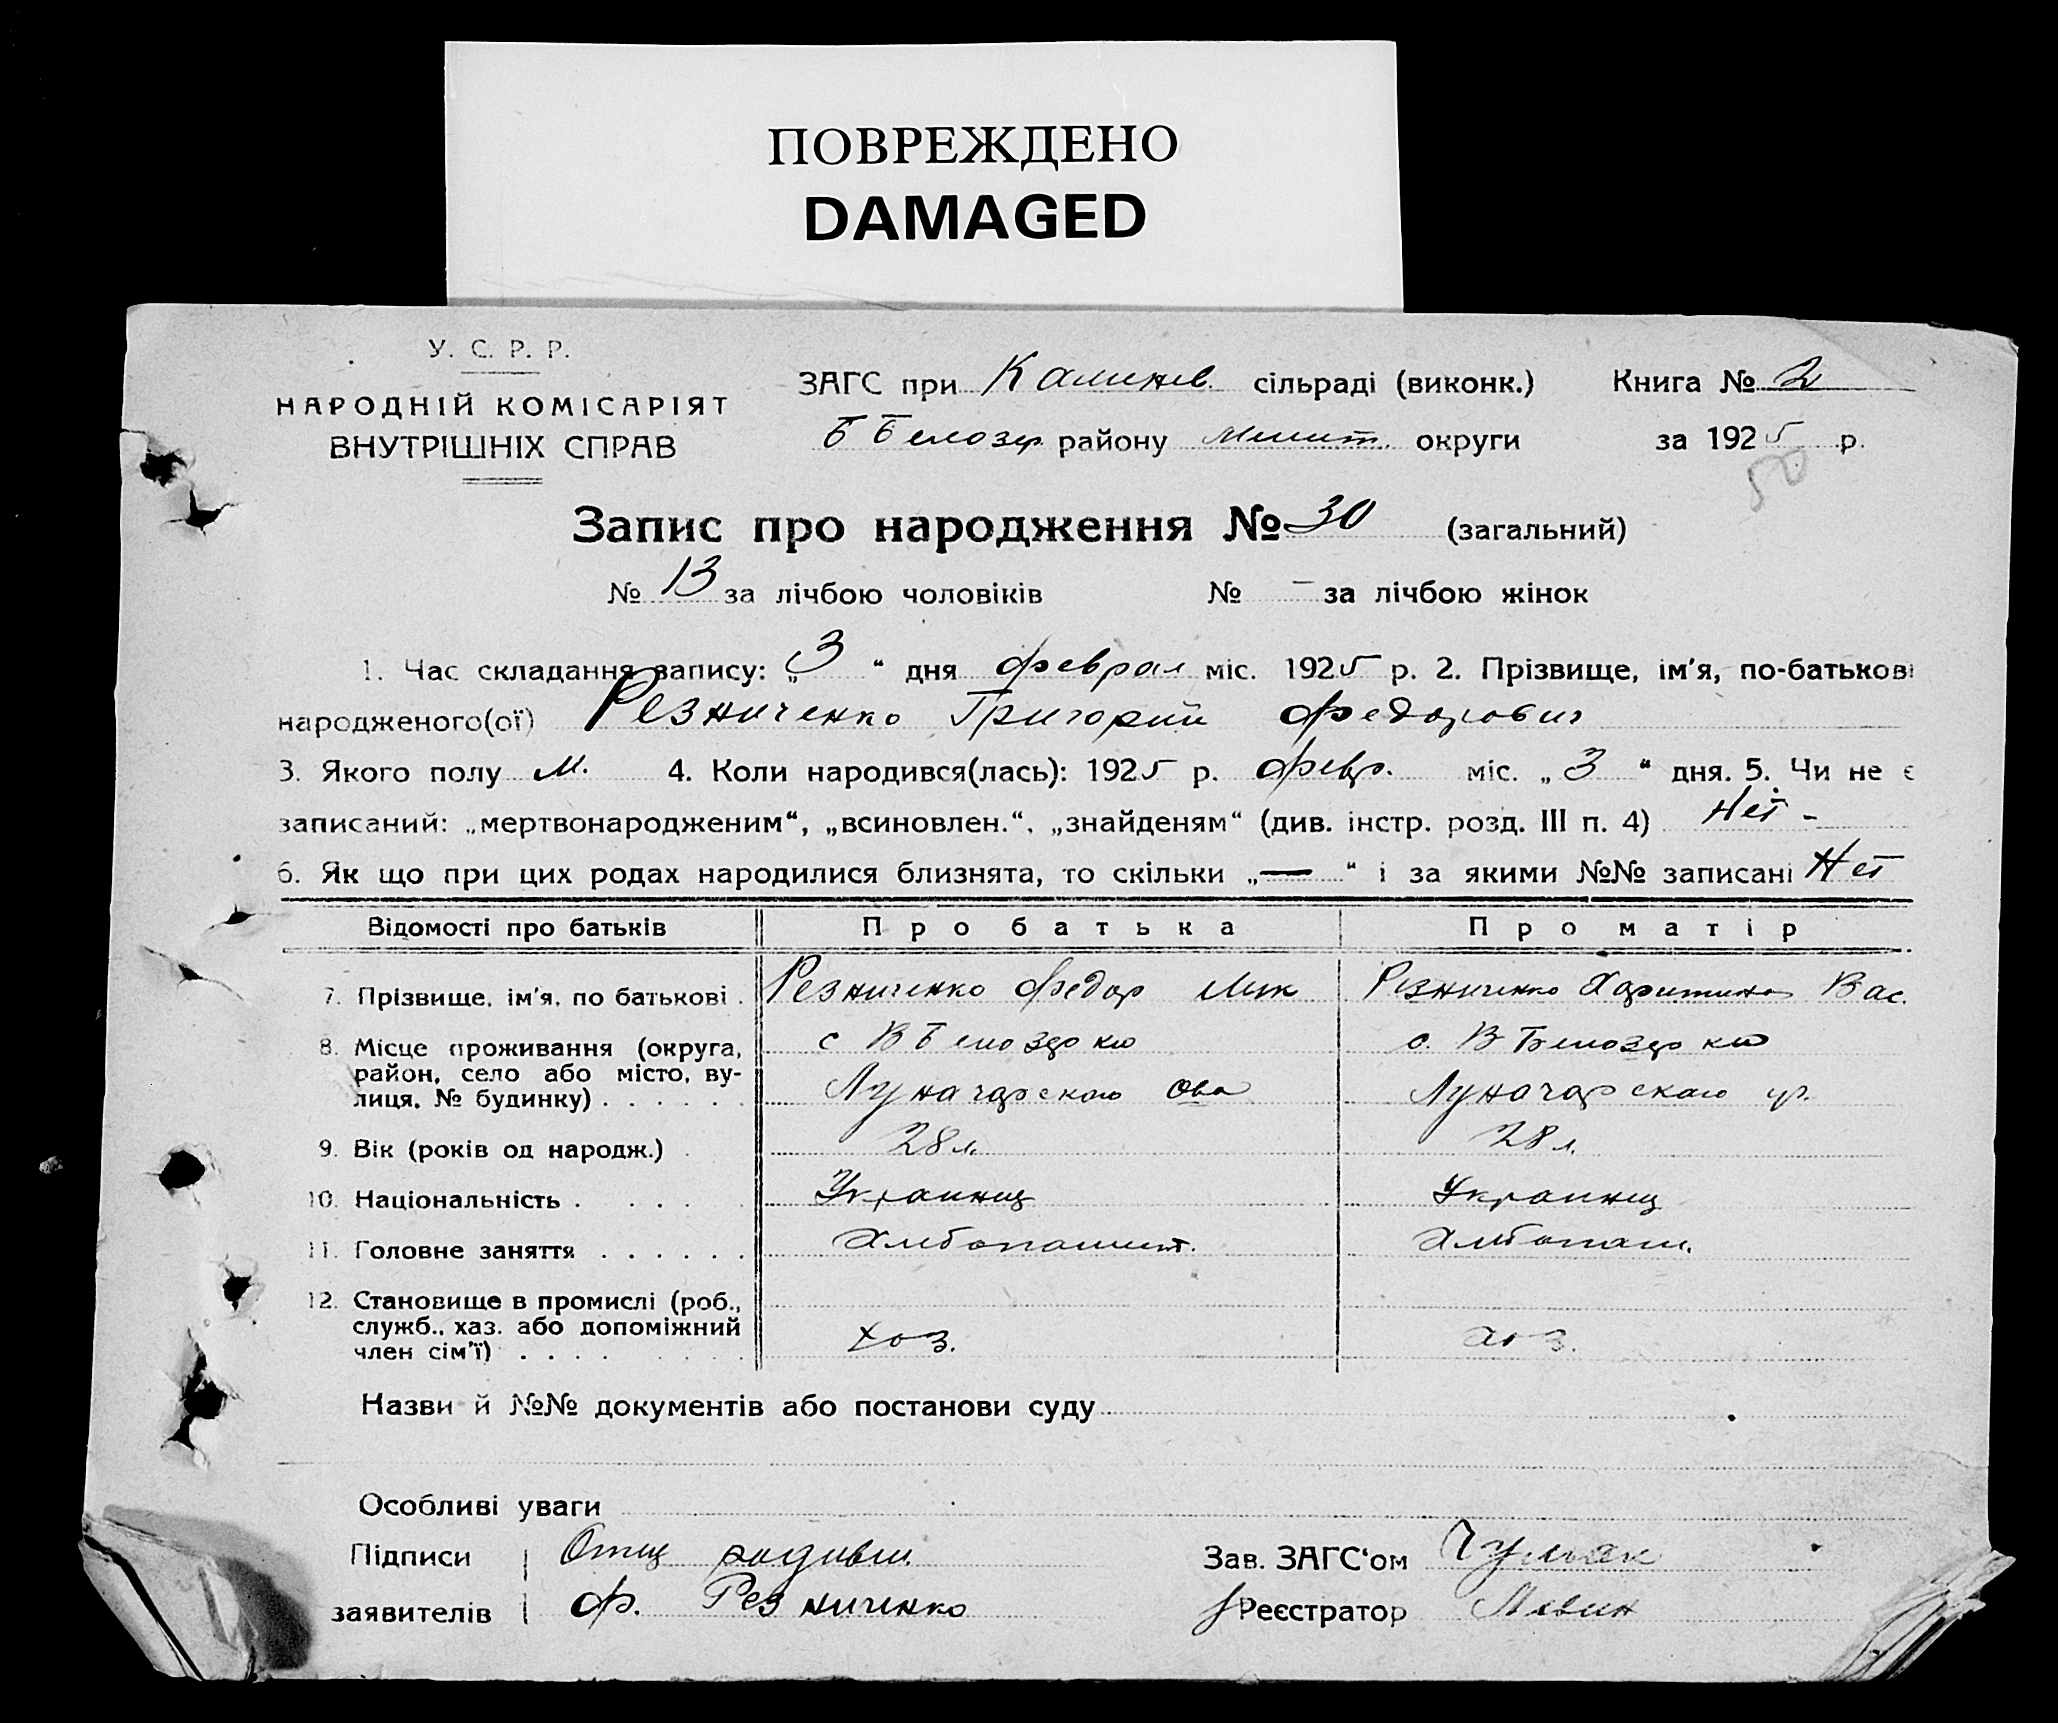 ПОВРЕЖДЕНО
DAMAGED
У. С. Р. Р.
НАРОДНІЙ КОМІСАРІЯТ
ВНУТРІШНІХ СПРАВ
ЗАГС при Калинов. сільраді (виконк.) Книга № 2
Б Белозер району Мелит. округи за 1925 р.
50
Запис про народження № 30 (загальний)
№ 13 за лічбою чоловіків № – за лічбою жінок
1. Час складання запису: „3“ дня феврал міс. 1925 р. 2. Прізвище, ім'я, по-батькові
народженого(ої) Резниченко Григорий Федорович
3. Якого полу м. 4. Коли народився(лась): 1925 р. февр. міс. „3“ дня. 5. Чи не є
записаний: „мертвонародженим“, „всиновлен.“, „знайденям“ (див. інстр. розд. III п. 4) Нет -
6. Як що при цих родах народилися близнята, то скільки „—“ і за якими №№ записані Нет
Відомості про батьків Про батька Про матір
7. Прізвище, ім'я, по батькові . Резниченко Федор Мик Резниченко Харитина Вас.
8. Місце проживання (округа, район, село або місто, вулиця, № будинку) . . . . . .
с В Белозерко с. В Белозерко
Луначарскаго Луначарскаго
9. Вік (років од народж.) . 28 л. 28 л.
10. Національність . . . . Украинец Украинец
11. Головне заняття . . . . . . Хлебопашест. Хлебопаш.
12. Становище в промислі (роб.,
служб., хаз. або допоміжний
член сім'ї) . . . . хоз. хоз.
Назви й №№ документів або постанови суду
Особливі уваги
Підписи Отец Зав. ЗАГС‘ом
заявителів Ф. Резниченко Реєстратор